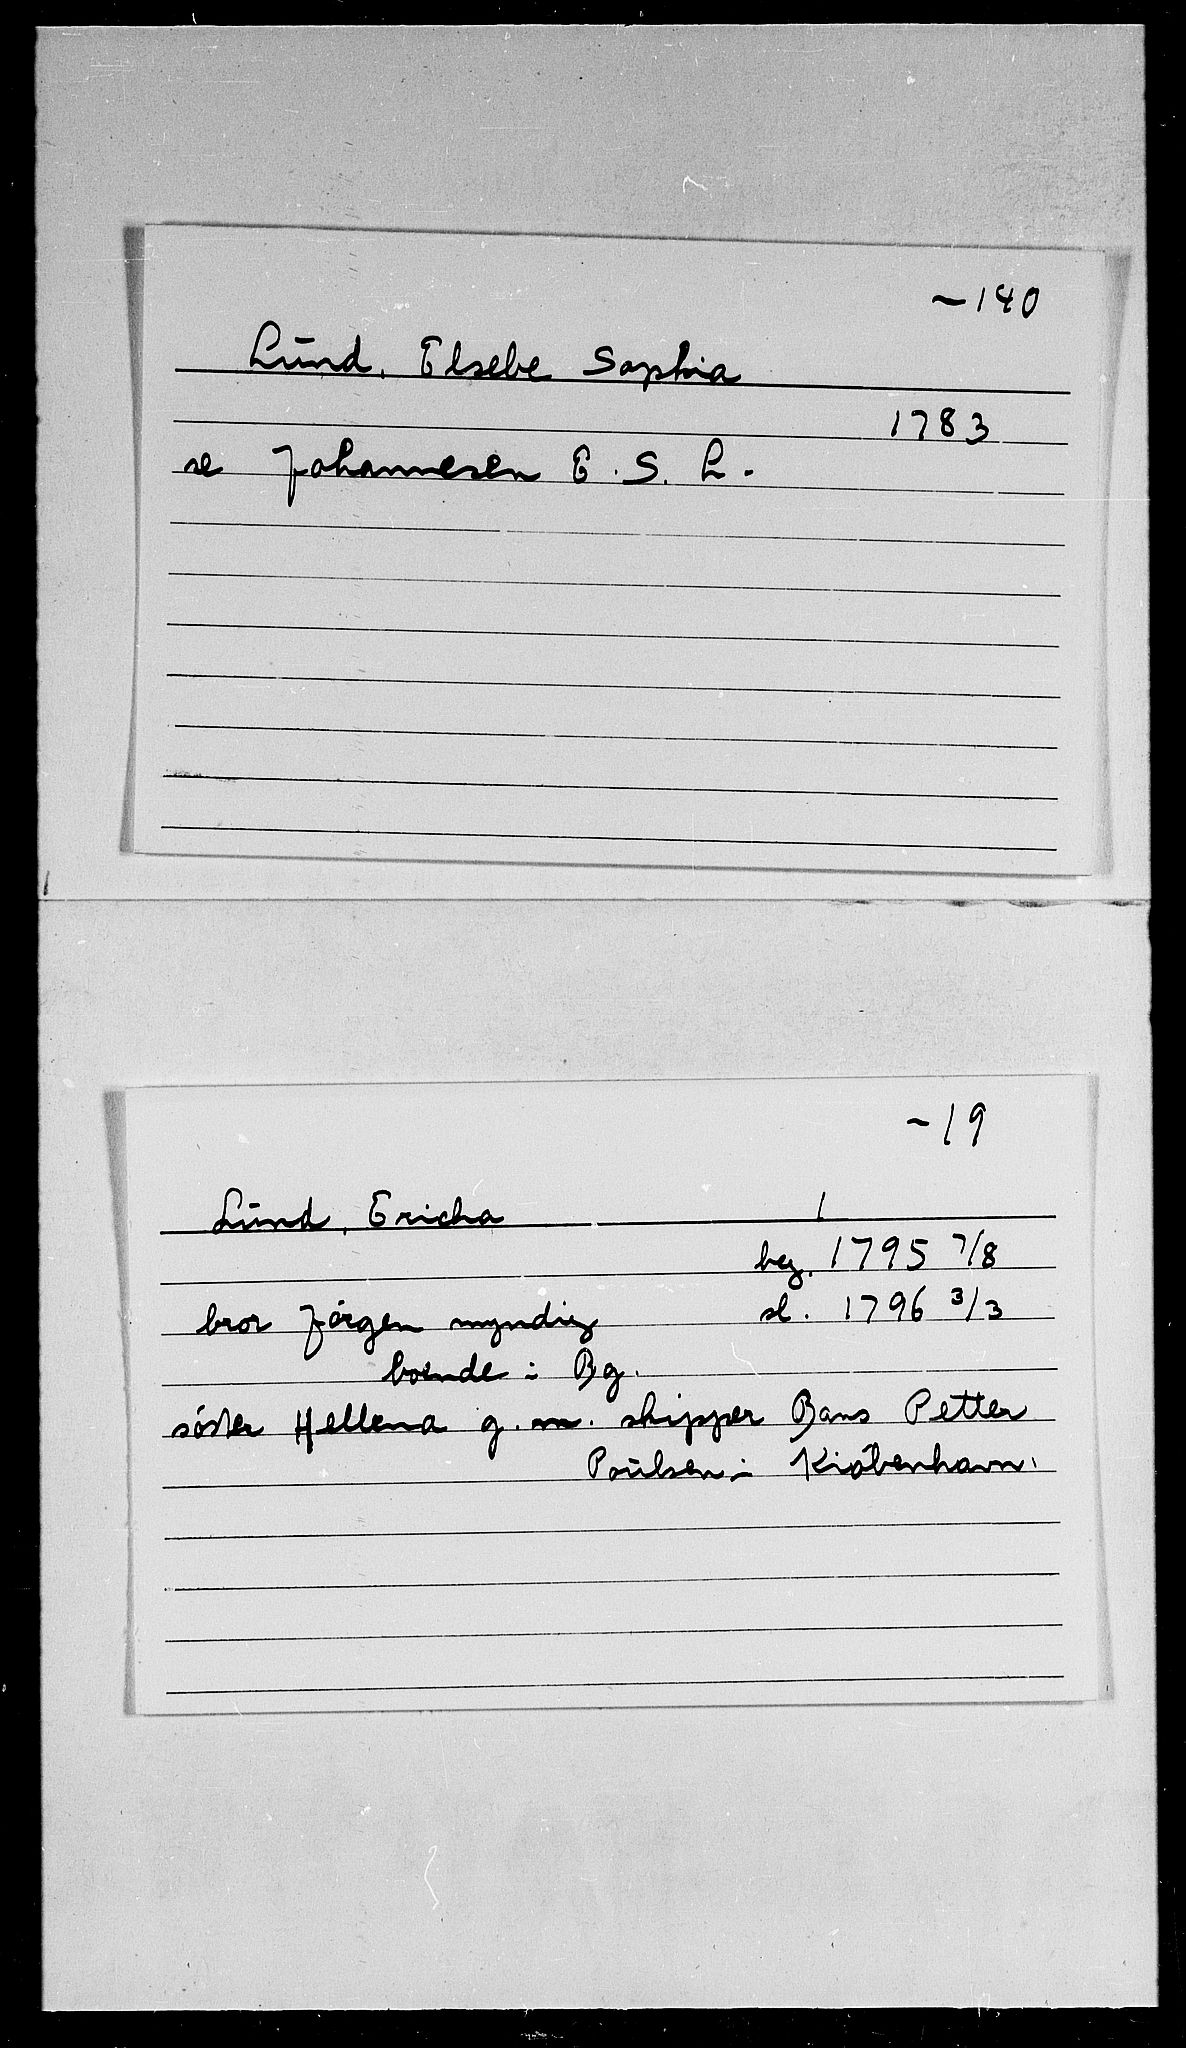 ~140
Lund, Elsebe Sophia
1783
se Johannesen E. S. L.
~19
Lund, Ericha 1
beg. 1795 7/8
bror Jørgen myndig sl. 1796 3/3
boende i Bg.
søster Hellena g. m. skipper Bans Petter
Poulsen i Kiøbenhavn.